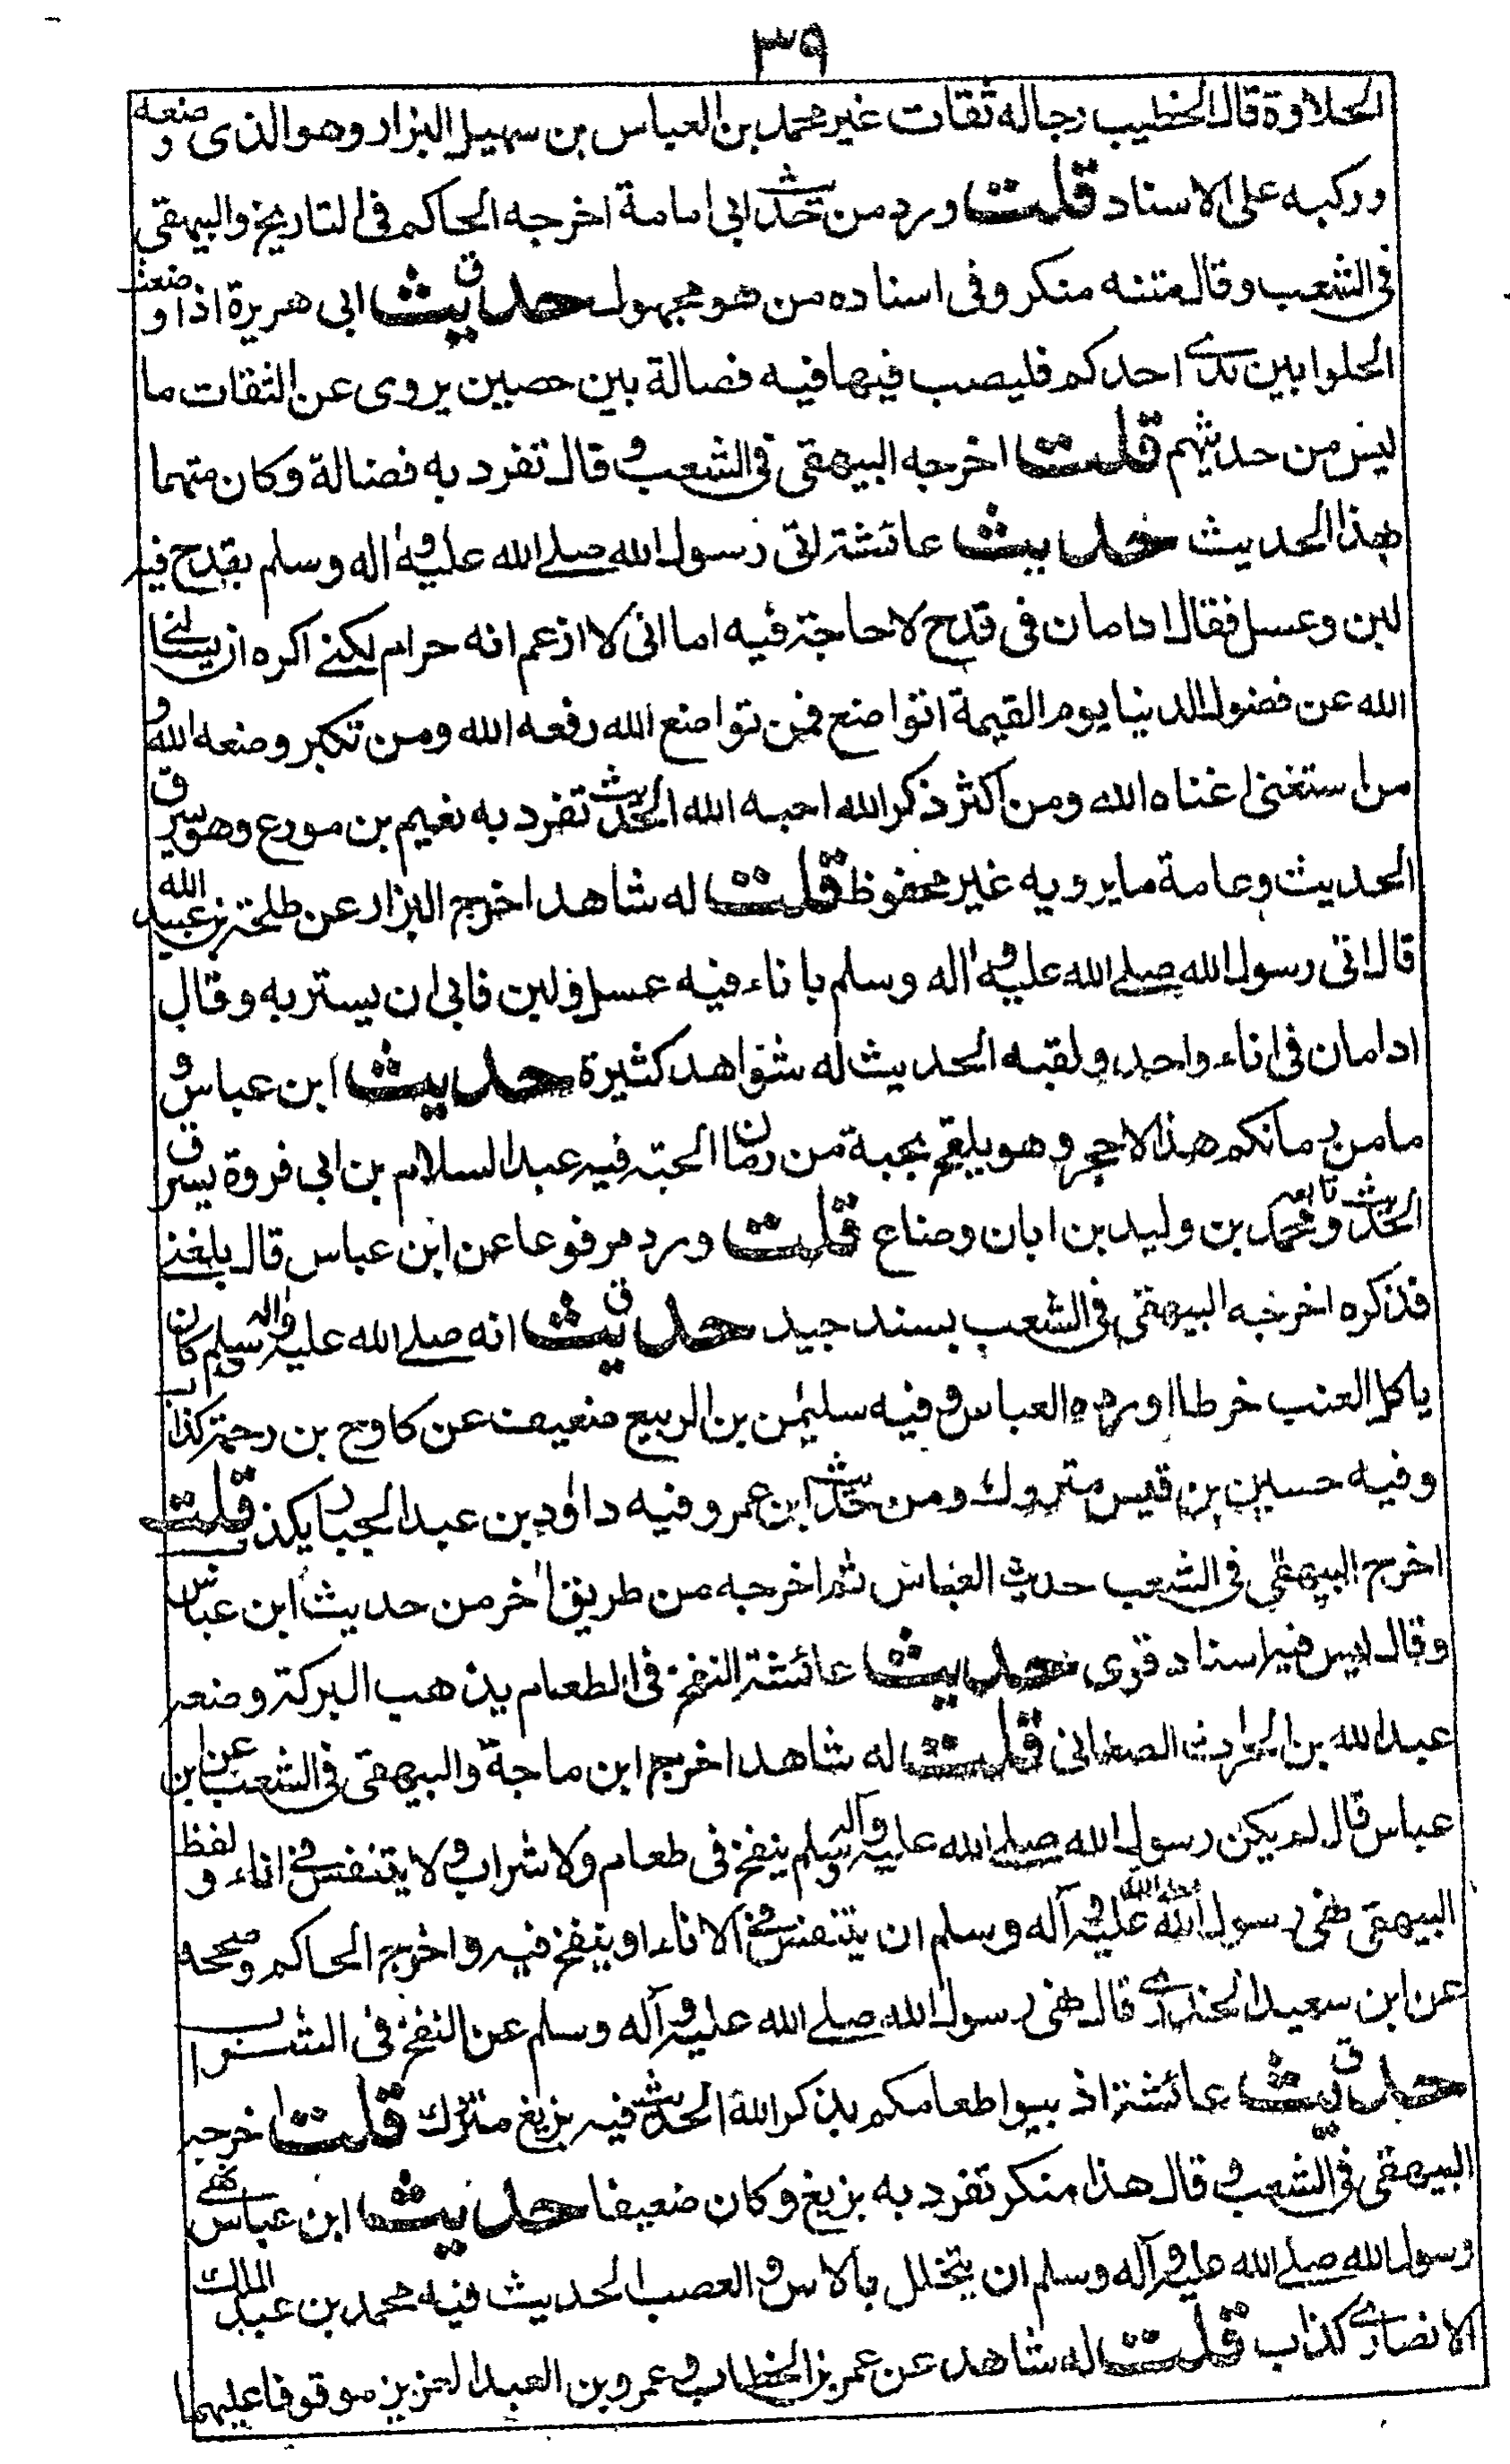 ٣٩
الحلاوة قال الخطيب رجاله ثقات غير محمد بن العباس بن سهيل البزار وهو الذى وضعه
وركبه على الاسناد قلت ورد من حديث ابى امامة اخرجه الحاكم فى التاريخ والبيهقى
فى الشعب وقال متنه منكر وفى اسناده من هو مجهول حديث ابى هريرة اذا وضعت
الحلوا بين يدى احدكم فليصب فيها فيه فضالة بين حصين يروى عن الثقات ما
ليس من حديثهم قلت اخرجه البيهقى فى الشعب و قال تفرد به فضالة وكان متهما
بهذا الحديث حديث عائشة اتى رسول الله صلے الله عليه و اله وسلم بقدح فيه
لبن وعسل فقال ادامان فى قدح لا حاجة فيه اما انى لا ازعم انه حرام لكنے اكره ان يسالنے
الله عن فضول الدنيا يوم القيمة اتواضع فمن تواضع الله رفعه الله ومن تكبر وضعه الله و
من استغنى اغناه الله ومن اكثر ذكر الله احبه الله الحديث تفرد به نعيم بن مورع وهو يسرق
الحديث وعامة ما يرويه غير محفوظ قلت له شاهد اخرج البزار عن طلحة بن عبيد الله
قال اتى رسول الله صلے الله عليه و اله وسلم باناء فيه عسل و لبن فابى ان يستربه وقال
ادامان فى اناء واحد ولقبه الحديث له شواهد كثيرة حديث ابن عباس و
ما من رمانكم هذا الا جر وهو يلقح بحبة من رمان الحبة فيه عبد السلام بن ابى فروة يسرق
الحديث وتابعه محمد بن وليد بن ابان وضاع قلت ورد مرفوعا عن ابن عباس قال بلغنے
فذكره اخرجه البيهقى فى الشعب بسند جيد حديث انه صلے الله عليه واله وسلم كان
ياكل العنب خرطا اورده العباس و فيه سليمن بن الربيع ضعيف عن كاوح بن رحمة كذاب
وفيه حسين بن قيس متروك ومن حديث ابن عمر وفيه داود بن عبد الجبار يكذب قلت
اخرج البيهقى فى الشعب حديث العباس ثم اخرجه من طريق اخر من حديث ابن عباس
وقال ليس فيه اسناد قوى حديث عائشة النفخ فى الطعام يذهب البركة وضعه
عبد الله بن الحارث الصنعانى قلت له شاهد اخرج ابن ماجة والبيهقى فى الشعب عن ابن
عباس قال لم يكن رسول الله صلے الله عليه واله وسلم ينفخ فى طعام ولا شراب و لا يتنفس فے اناء و لفظ
البيهقى نهى رسول الله صلے الله عليه و آله وسلم ان يتنفس فے الاناء او ينفخ فيه واخرج الحاكم وصححه
عن ابن سعيد الخدرى قال نهى رسول الله صلے الله عليه و آله وسلم عن النفخ فى الشراب
حديث عائشة اذيبوا طعامكم بذكر الله الحديث فيه بزيغ متروك قلت اخرجه
البيهقى فى الشعب و قال هذا منكر تفرد به بزيغ وكان ضعيفا حديث ابن عباس نهى
رسول الله صلے الله عليه و آله وسلم ان يتخلل بالاس و العصب الحديث فيه محمد بن عبد الملك
الانصارى كذاب قلت له شاهد عن عمر بن الخطاب و عمرو بن العبد العزيز موقوفا عليهما